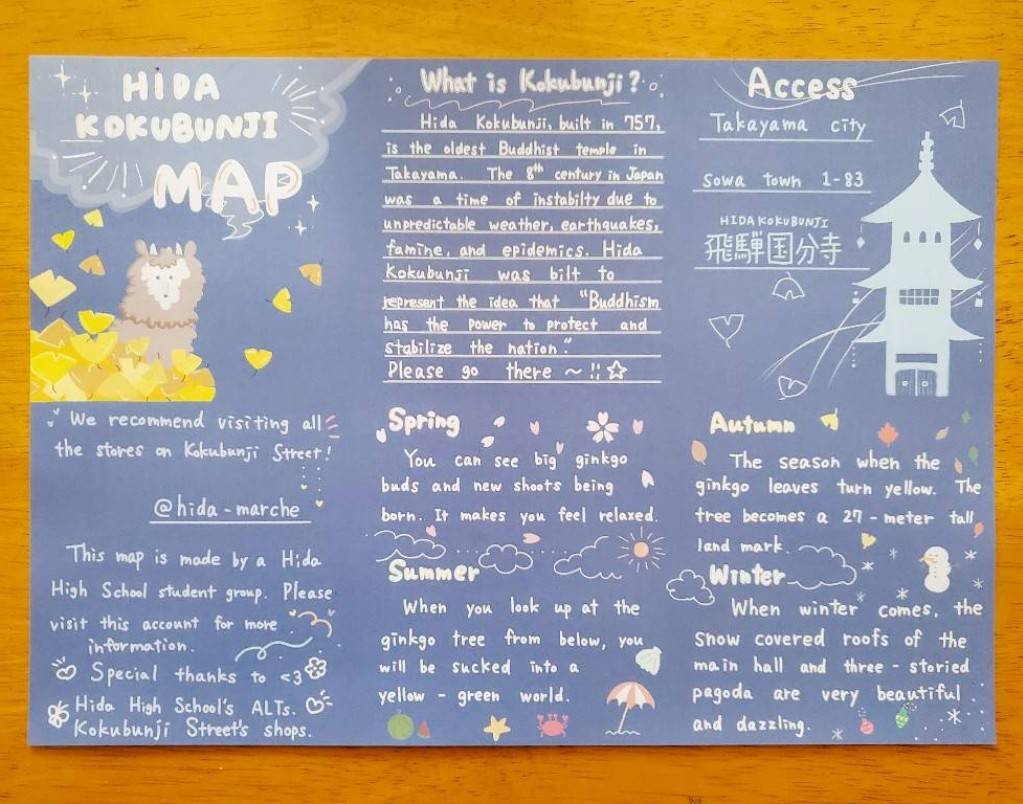 HIDA
KOKUBUNJI
MAP
We recommend visiting all
the stores on Kokubunji Street!
@hida-marche
This map is made by a Hida
High School student group. Please
visit this account for more
information.
Special thanks to <3
Hida High School's ALTs.
Kokubunji Street's shops.
What is Kokubunji?
Hida Kokubunji, built in 757,
is the oldest Buddhist temple in
Takayama. The 8th century in Japan
was a time of instabilty due to
unpredictable weather, earthquakes,
famine, and epidemics. Hida
Kokubunji was bilt to
represent the idea that "Buddhism
has the power to protect and
stabilize the nation".
Please go there ~!!☆
Spring
You can see big ginkgo
buds and new shoots being
born. It makes you feel relaxed.
Summer
When you look up at the
ginkgo tree from below, you
will be sucked into a
yellow-green world.
Access
Takayama city
Sowa town 1-83
HIDA KOKUBUNJI
飛騨国分寺
Autumn
The season when the
ginkgo leaves turn yellow. The
tree becomes a 27-meter tall
land mark.
Winter
When winter comes, the
snow covered roofs of the
main hall and three-storied
pagoda are very beautiful
and dazzling.